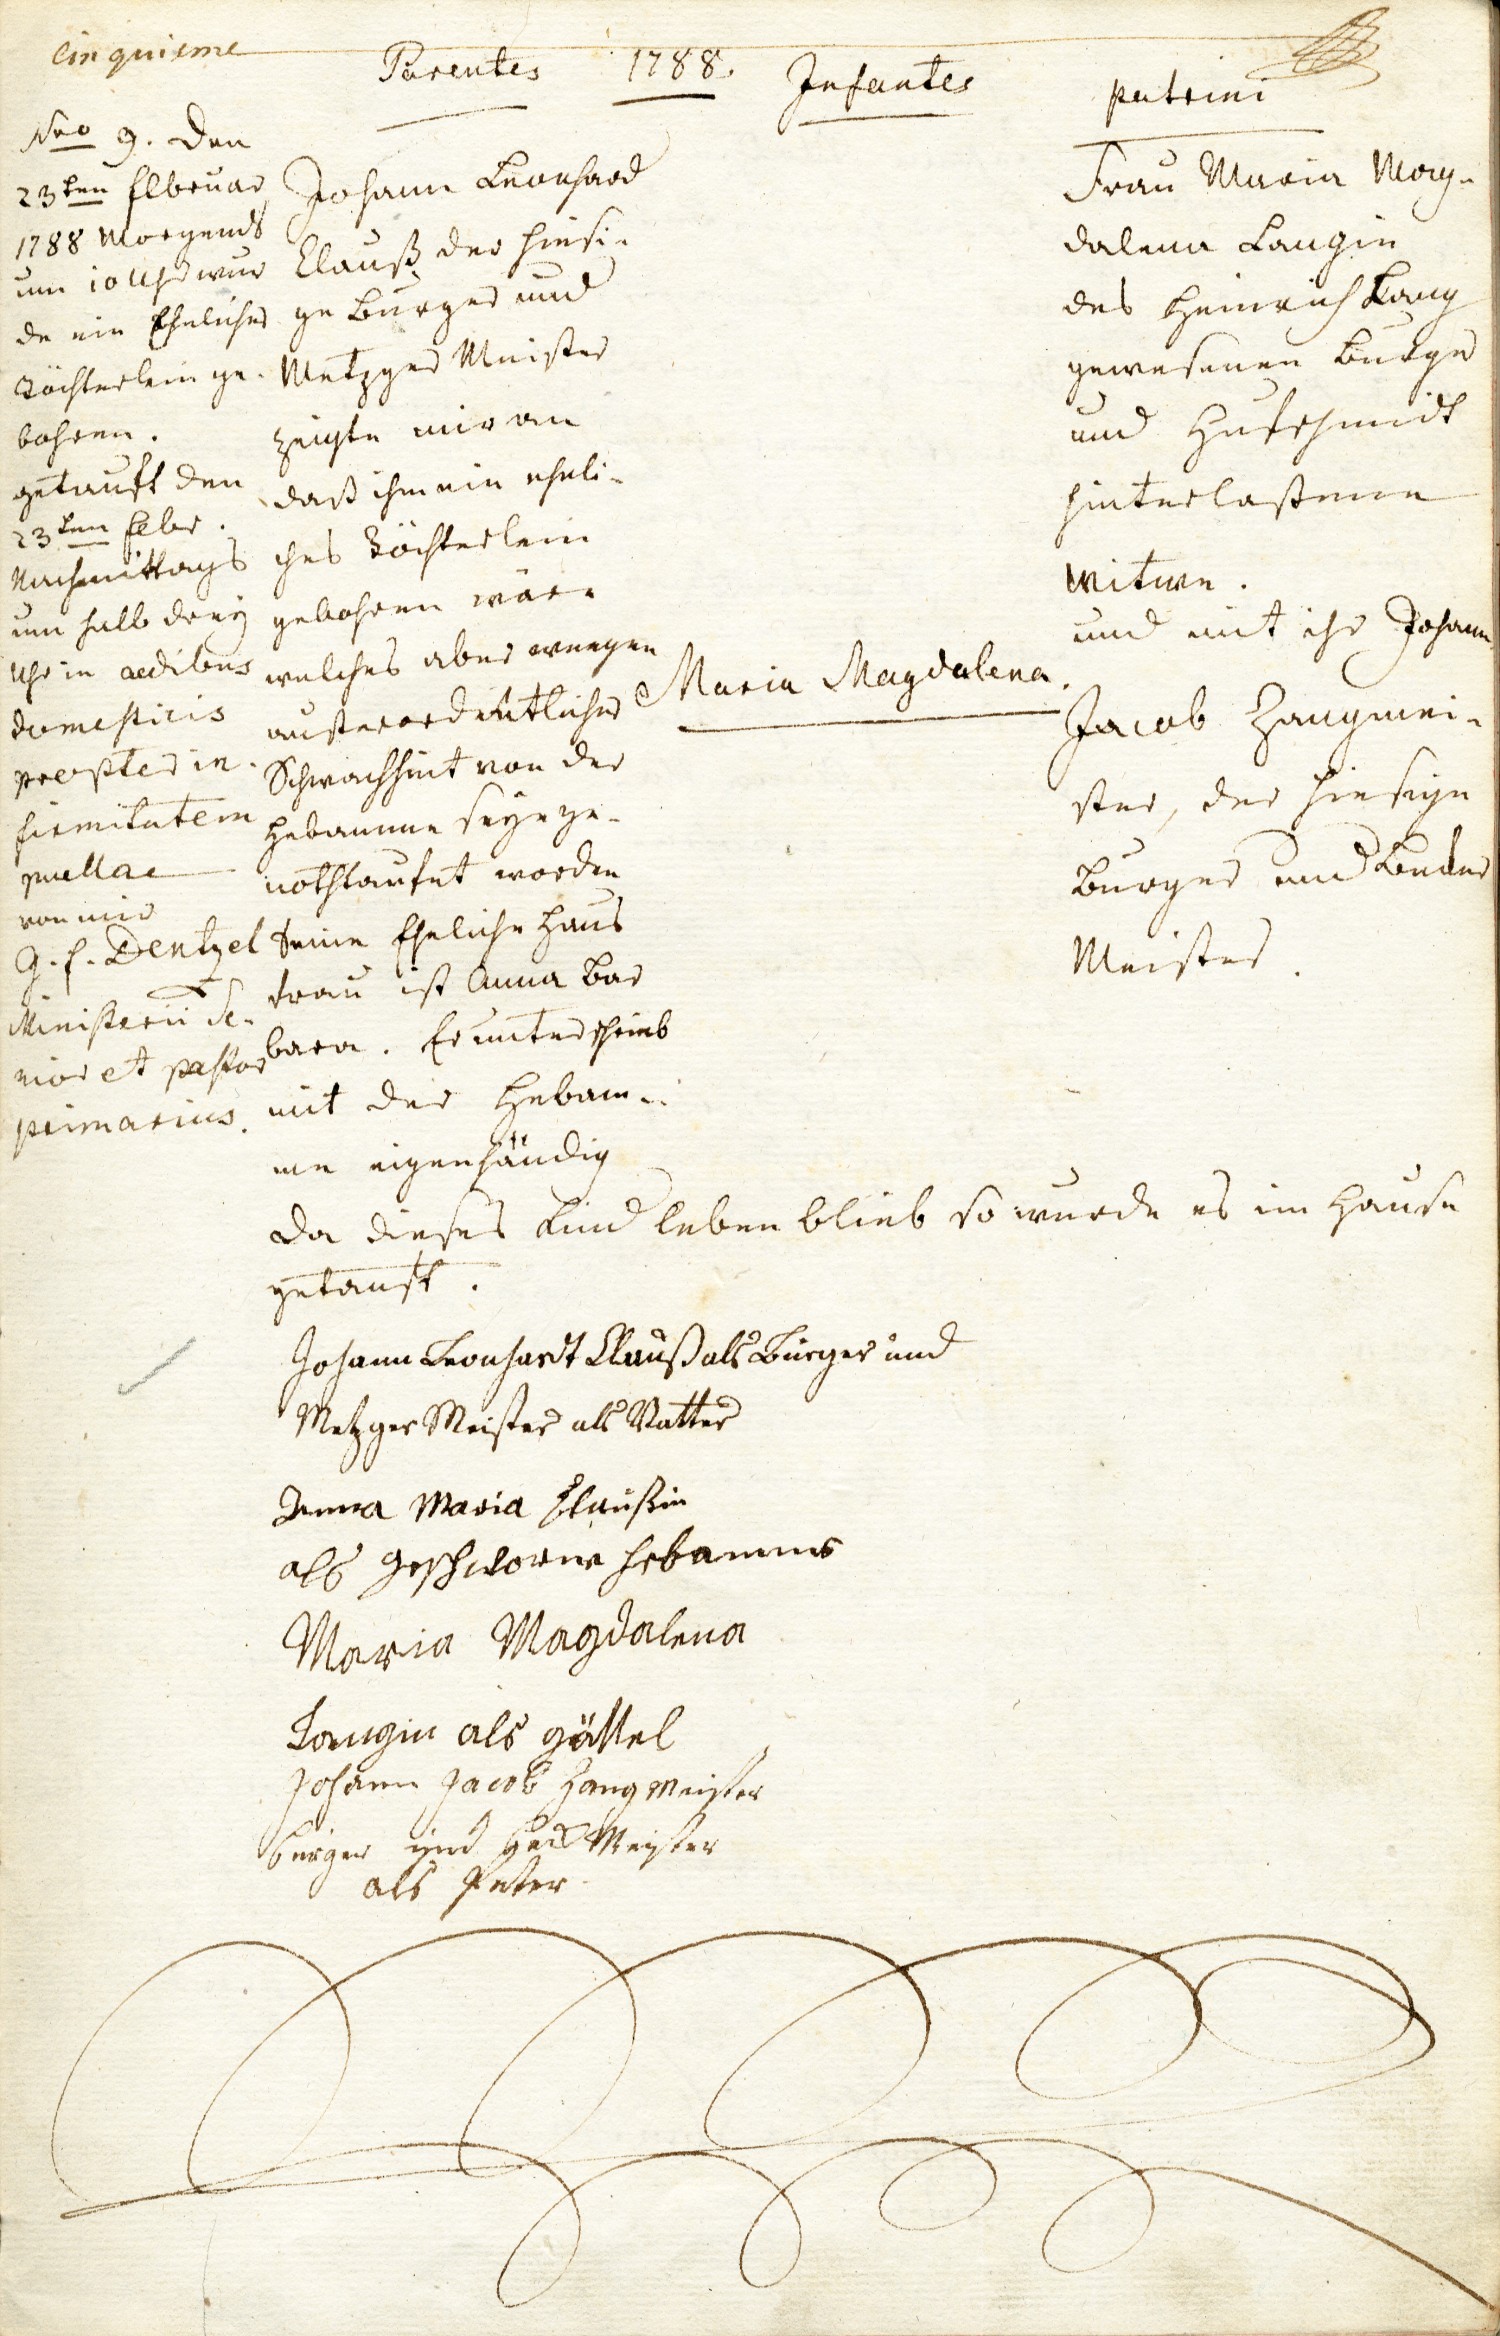 cinquieme
Parentes 1788. Infantes patrini
Nro 9. den
23ten Februar
1788 Morgends
um 10 Uhr wur
de ein Eheliches
Töchterlein ge-
bohren.
getauft den
23ten Febr.
Nachmittags
um halb drey
Uhr in aedibus
domesticis
propter in-
firmitatem
puellae
von mir
G. F. Dentzel
Ministerii Se-
nior et pastor
primarius.
Johann Leonhard
Clauß der hiesi-
ge Burger und
Metzger Meister
zeigte mir an
daß ihm ein eheli-
ches Töchterlein
gebohren wäre
welches aber wegen
außerordentlicher
Schwachheit von der
Hebamme seye ge-
nothtaufet worden
seine Eheliche Haus
frau ist Anna Bar
bara. Er unterschrieb
mit der Hebam-
me eigenhändig
Maria Magdalena.
Frau Maria Mag-
dalena Langin
des Heinrich Lang
gewesenen Burger
und Hufschmidt
hinterlaßene
Witwe.
und mit ihr Johann
Jacob Zangmei-
ster, der hiesige
Burger und Becker
Meister.
Da dieses Kind leben blieb so wurde es im Hause
getauft.
Johann Leonhardt Clauß als Bürger und
Metzger Meister als Vatter
Anna Maria Claußin
als geschworne hebamme
Maria Magdalena
Langin als göttel
Johann Jacob Zangmeister
bürger und Meister
als Petter